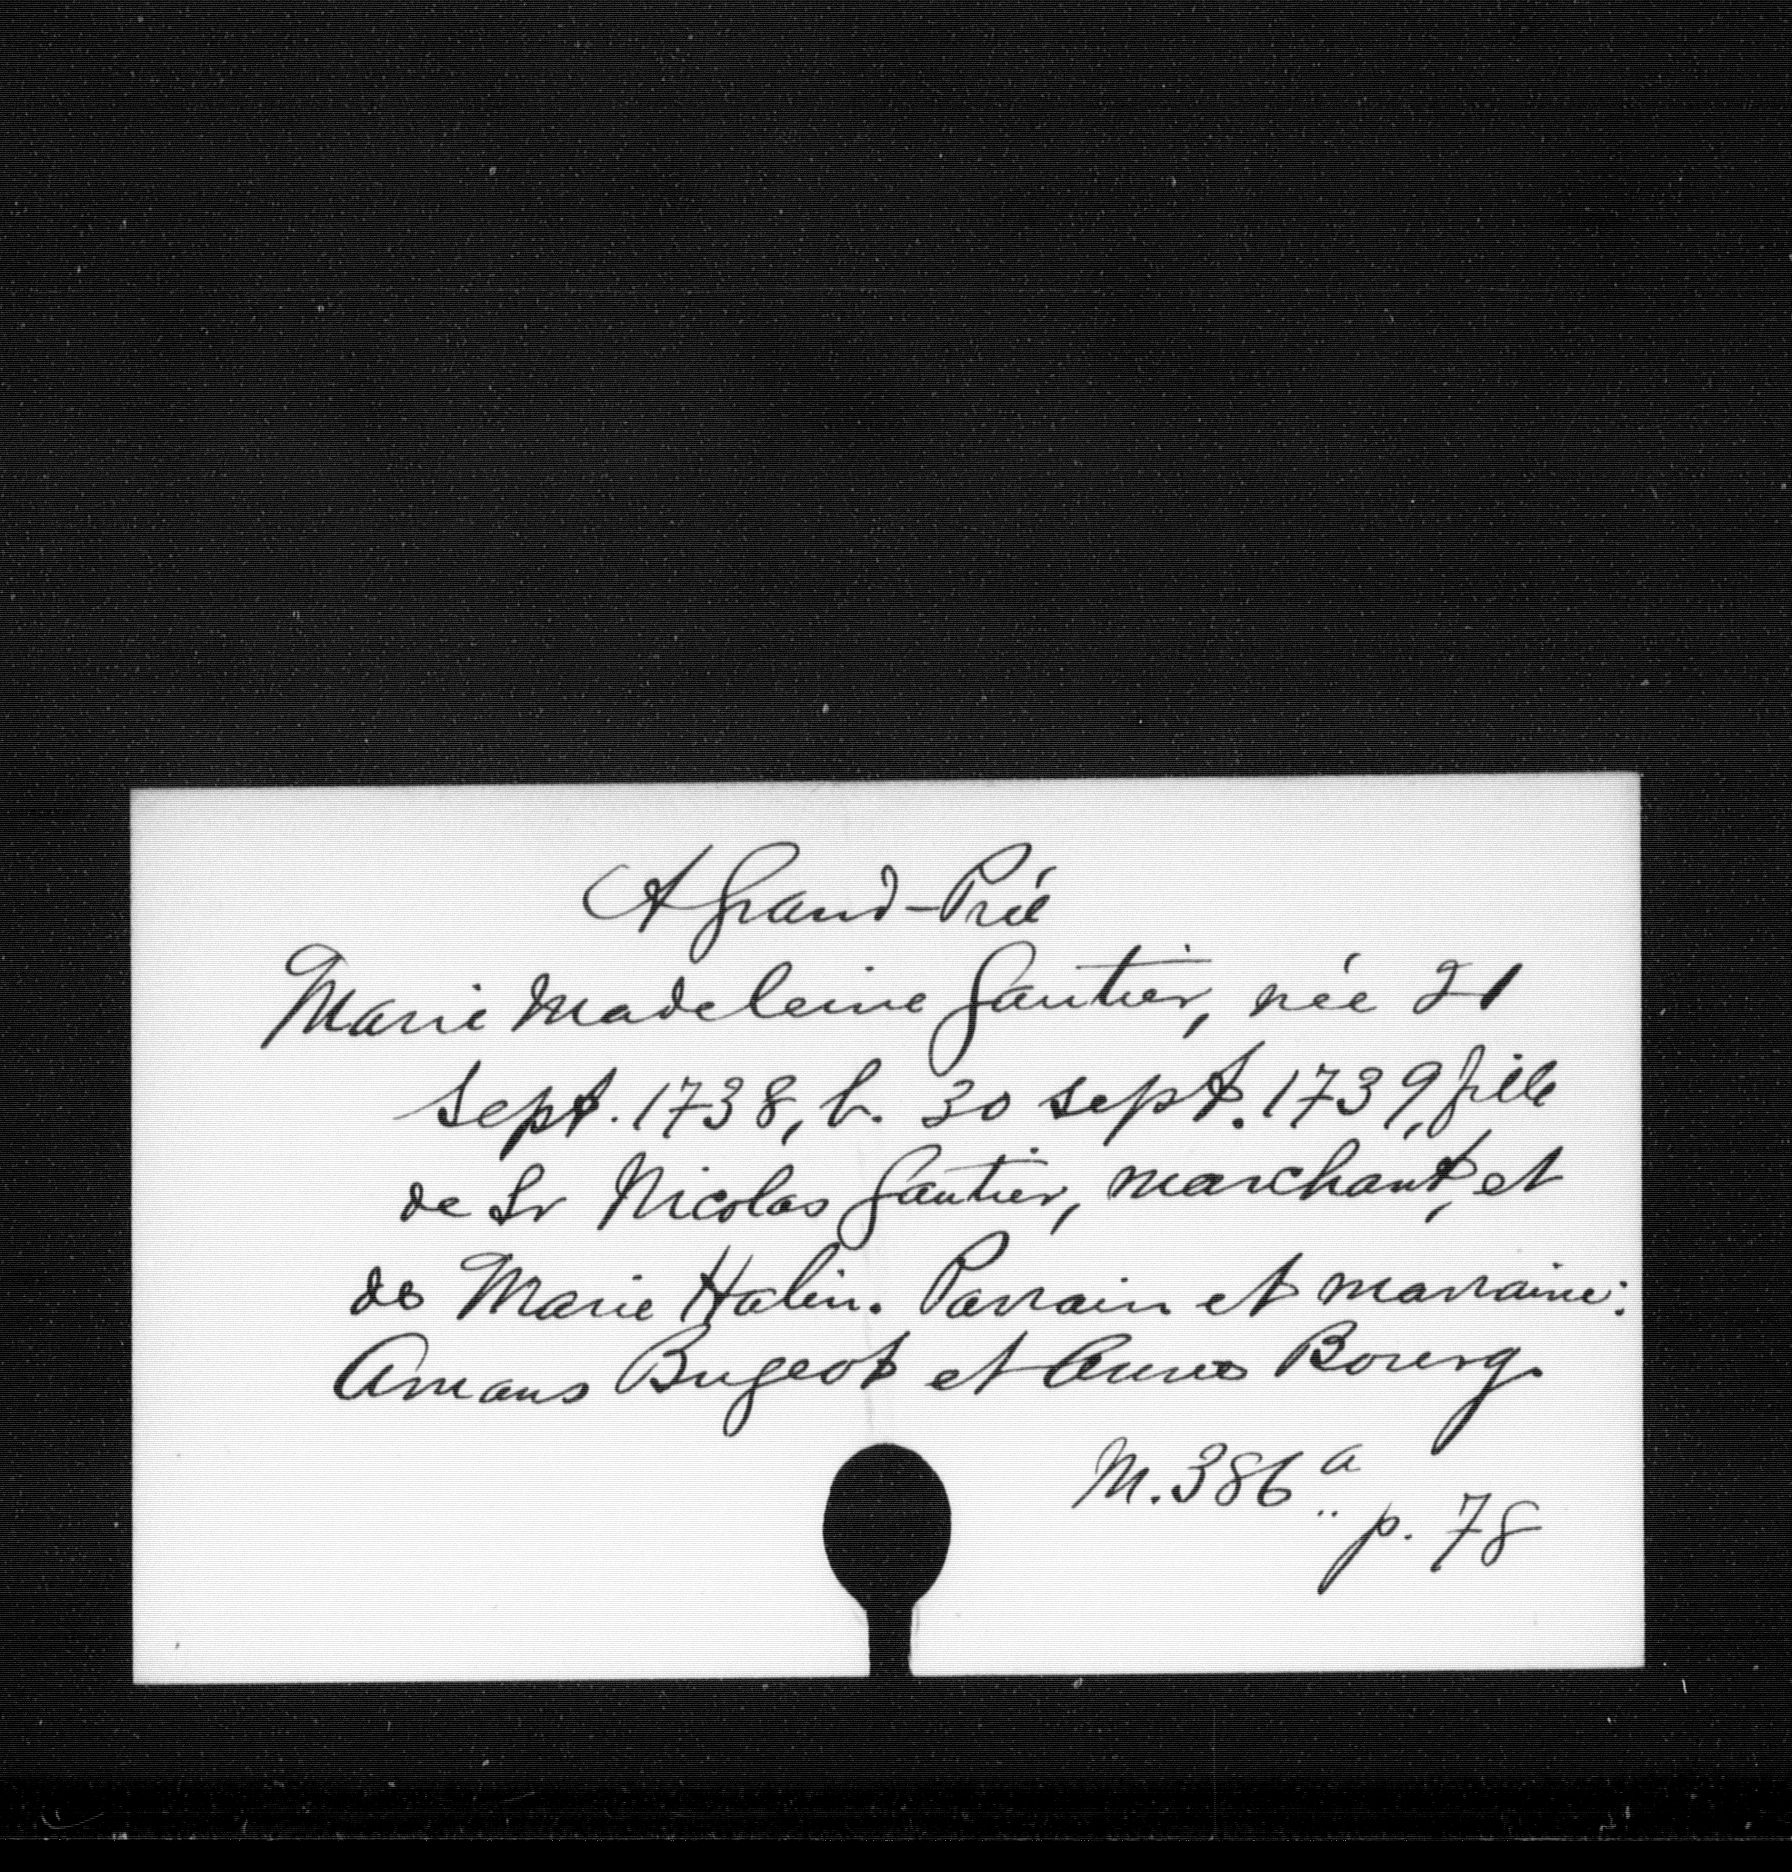 A Grand-Pré
Marie Madeleine Gautier, née 21
sept. 1738, b. 30 sept. 1739, fille
de Sr Nicolas Gautier, marchant, et
de Marie Halin. Parrain et marraine:
Amans Bugeot et Anne Bourg.
M. 386 a
p. 78